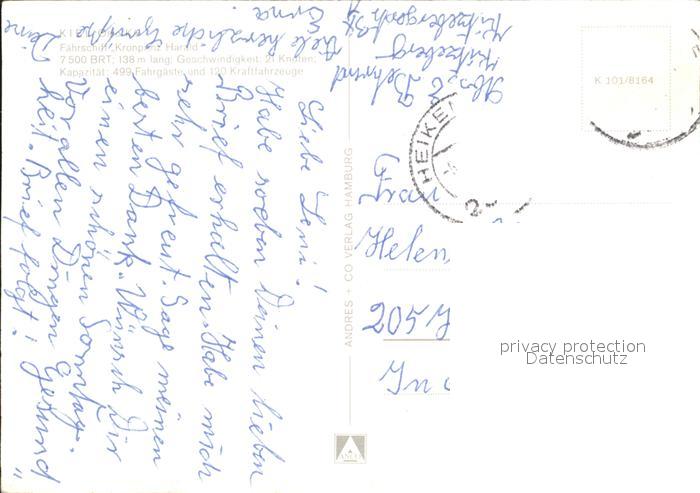 Fährschiff "Kronprinz Harald"
7 500 BRT; 138 m lang; Geschwindigkeit: 21 Knoten;
Kapazität: 499 Fahrgäste und 120 Kraftfahrzeuge
Liebe Leni!
Habe soeben Deinen lieben
Brief erhalten. Habe mich
sehr gefreut. Sage meinen
besten Dank. Wünsch Dir
einen schönen Sonntag.
Vor allen Dingen Gesund
heit. Brief folgt!
Viele herzliche Grüße
Deine
Erna
ANDRES + CO VERLAG HAMBURG
ANCO
Abs. E. Behrend
Kitzeberg
Kitzebergerstr.
K 101/8164
HEIKEN
2
Frau
Helen
205
In
privacy protection
Datenschutz